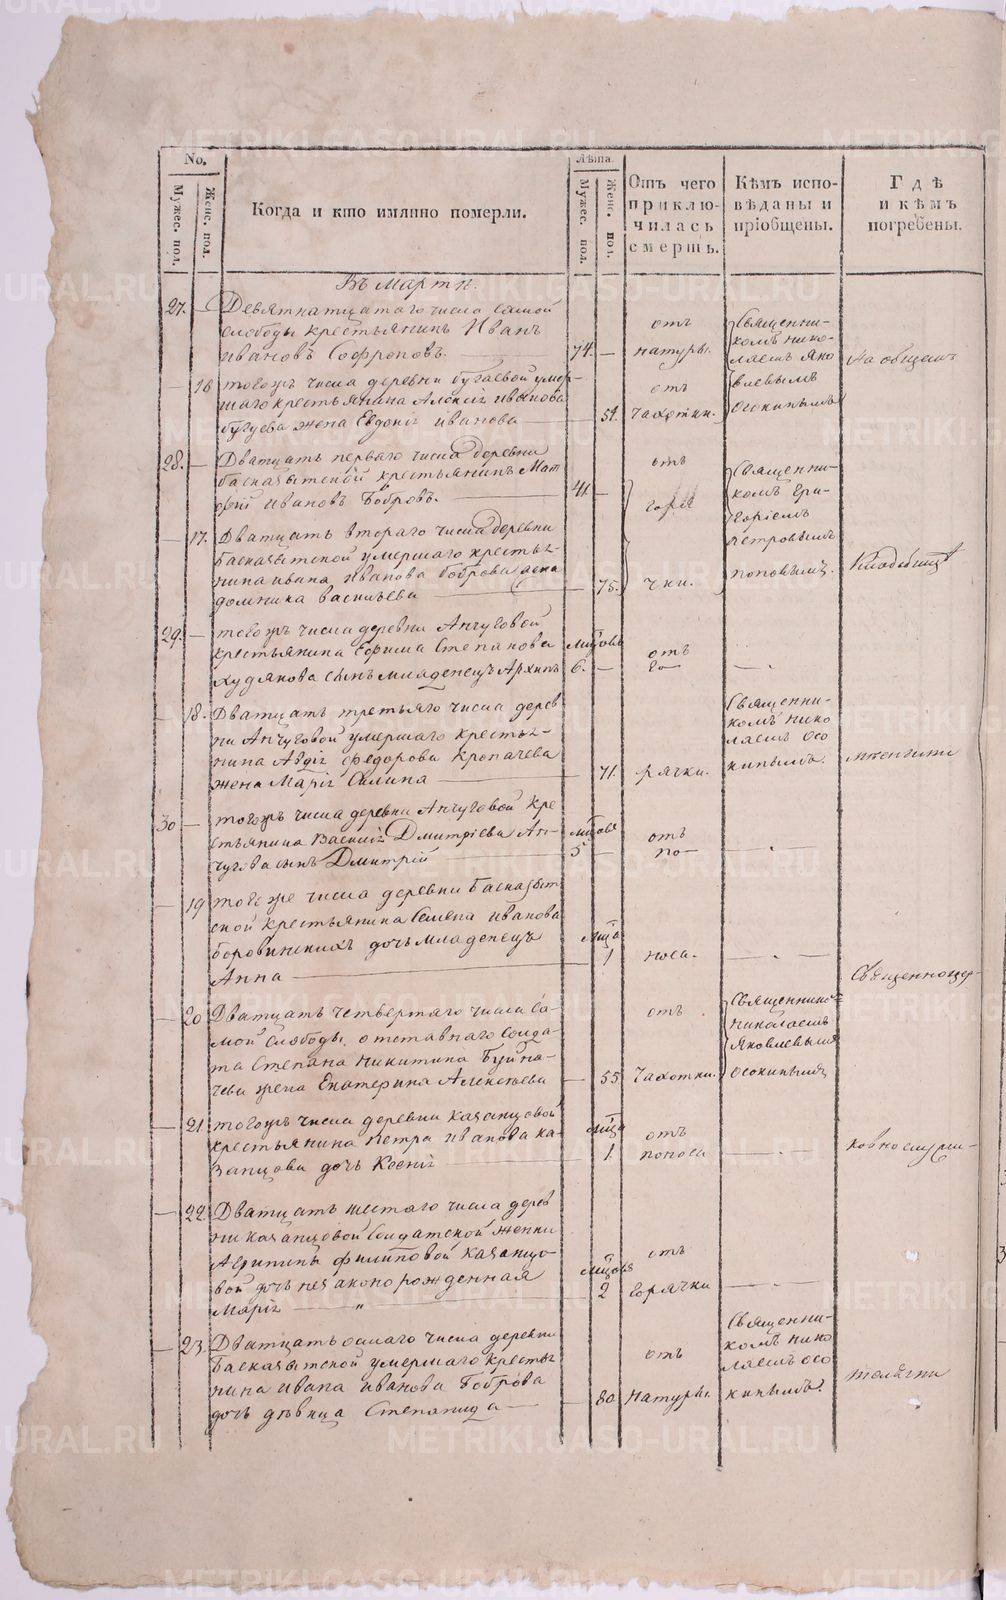 No.
Мужес. пол.
Женс. пол.
Когда и кто имянно померли.
Лѣта.
Мужес. пол.
Женс. пол.
Отъ чего
приклю-
чилась
смерть.
Кѣмъ испо-
вѣданы и
пріобщены.
Гдѣ
и кѣмъ
погребены.
Въ Мартѣ.
27. — Девятнатцатаго числа самой
слободы крестьянинъ Иванъ
Ивановъ Софроновъ.
74. —
отъ
натуры.
Священни-
комъ Нико-
лаемъ Яко
влевымъ
Осокинымъ
На общемъ
— 16 тогожъ числа деревни Бугаевой умер-
шаго крестьянина Алексія Иванова
Бугуева жена Евдокія Иванова
— 59.
отъ
чахотки.
28. — Дватцать перваго числа деревни
Басказытской крестьянинъ Мат
фій Ивановъ Бобровъ.
41. —
отъ
горя
Священни-
комъ Гри-
горіемъ
Петровымъ
Поповымъ.
— 17. Дватцать втораго числа деревни
Басказытской умершаго крестья-
нина Ивана Иванова Боброва жена
Домника Васильева
— 75.
чки.
Кладбищѣ
29. — тогожъ числа деревни Анчуговой
крестьянина Ефима Степанова
Худякова сынъ младенецъ Архипъ
мцовъ
6. —
отъ
го—
— . —
— 18. Дватцать третьяго числа дерев
ни Анчуговой умершаго крестья-
нина Авдія Федорова Кропачева
жена Марія Силина
— 71.
рячки.
Священни-
комъ Нико
лаемъ Осо
кинымъ.
30 — тогожъ числа деревни Анчуговой кре
стьянина Василія Дмитріева Ан-
чугова сынъ Дмитрій
мцовъ
5 —
отъ
по—
— . —
— 19 тогоже числа деревни Басказыт
ской крестьянина Семена Иванова
Боровинскихъ дочь младенецъ
Анна
мца
1
носа.
— . —
Священноцер-
— 20 Дватцать четвертаго числа са-
мой слободы отставнаго солда-
та Степана Никитина Буйна-
чева жена Екатерина Алексѣева
— 55
отъ
чахотки.
Священнико-
Николаемъ
Яковлевымъ
Осокинымъ
— 21 тогожъ числа деревни Казанцовой
крестьянина Петра Иванова Ка-
занцова дочь Ксенія
мца
1.
отъ
поноса
— . —
ковнослужи-
— 22. Дватцать шестаго числа дерев
ни Казанцовой солдатской женки
Агрипины Филиповой Казанцо-
вой дочь незаконорожденная
Марія
мцовъ
2
отъ
горячки
— . —
— 23. Дватцать осмаго числа деревни
Басказытской умершаго крестья
нина Ивана Иванова Боброва
дочь дѣвица Степанида
— 80
отъ
натуры.
Священни-
комъ Нико
лаемъ Осо
кинымъ.
телями